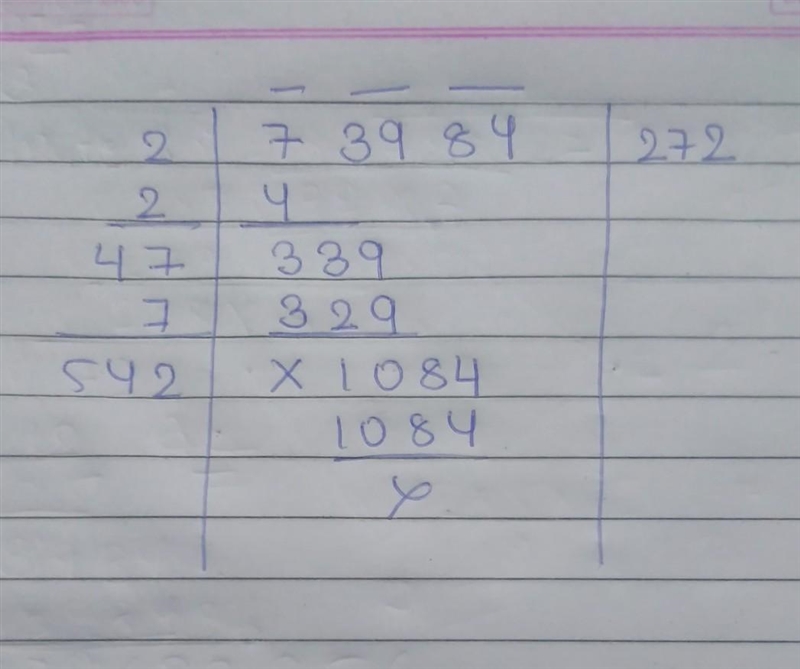 2 7 39 84 272
2 4
47 339
7 329
542 × 1084
1084
×